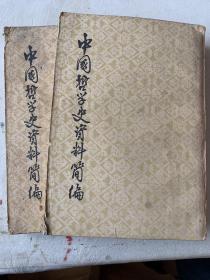 中国哲学史资料简编
中国哲学史资料简编